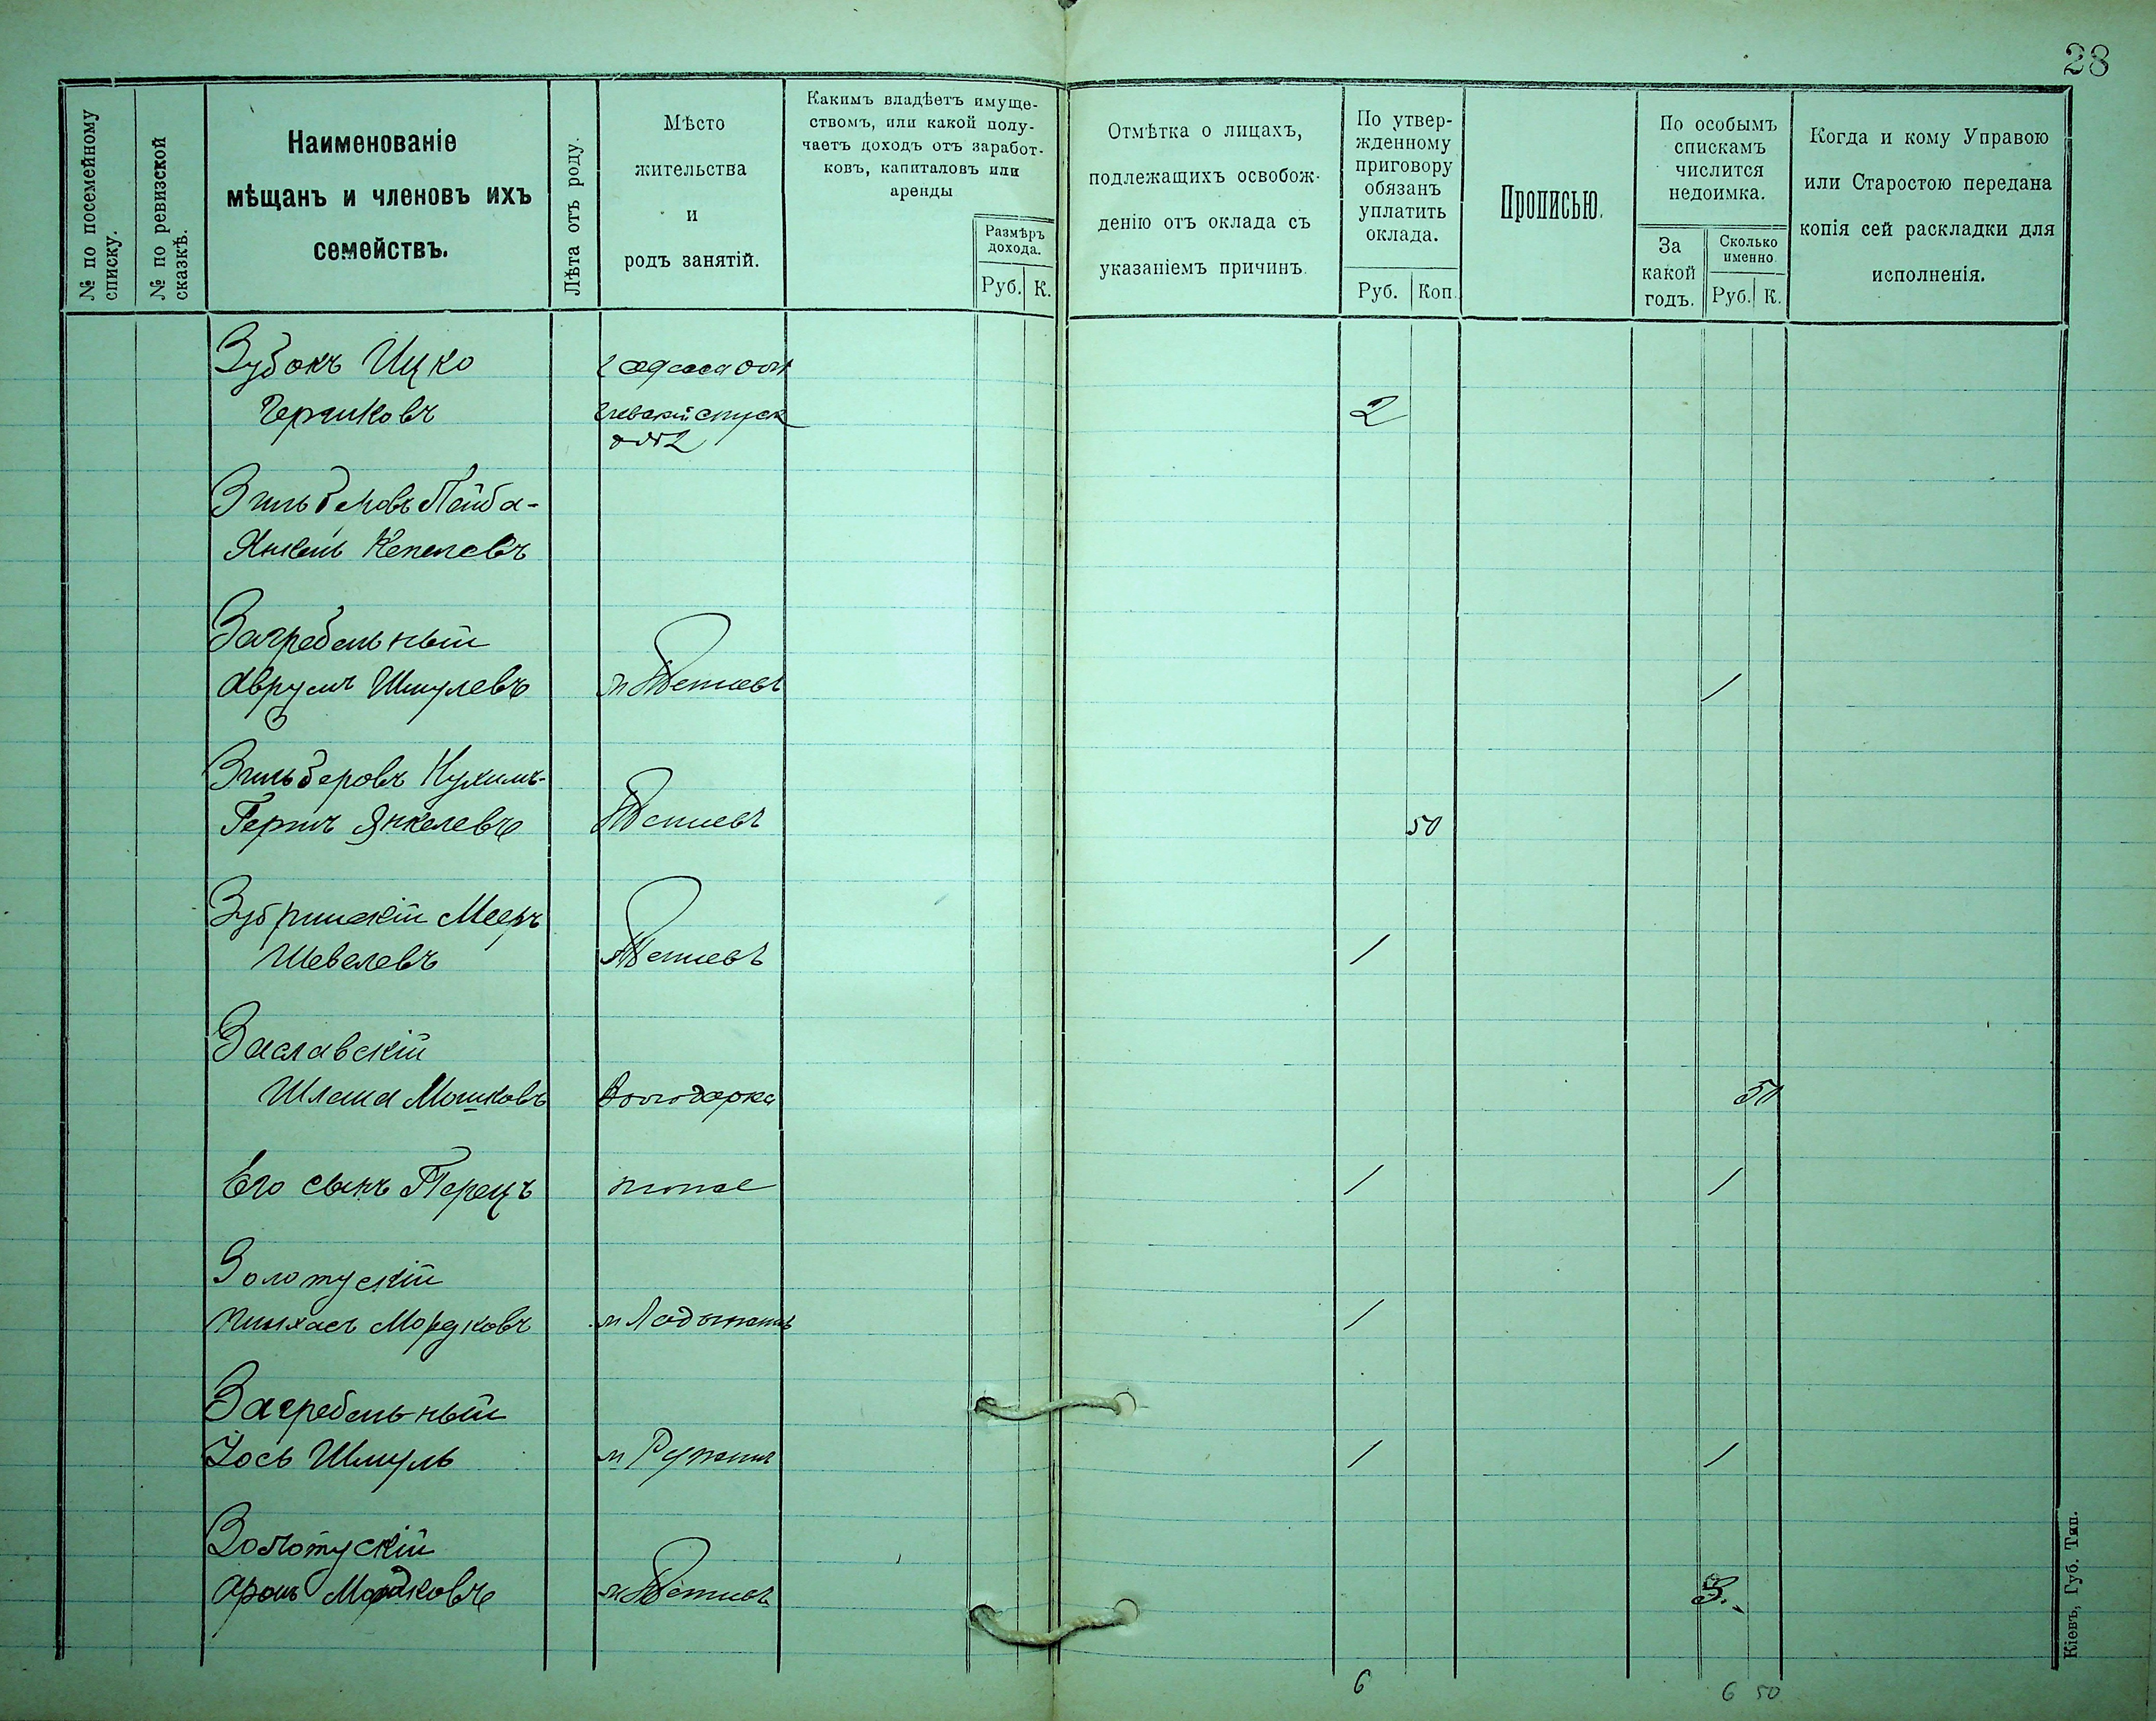 28
№ по посемейному
списку.
№ по ревизской
сказкѣ.
Наименованіе
мѣщанъ и членовъ ихъ
семействъ.
Лѣта отъ роду.
Мѣсто
жительства
и
родъ занятій.
Какимъ владѣетъ имуще-
ствомъ, или какой полу-
чаетъ доходъ отъ заработ-
ковъ, капиталовъ или
аренды
Размѣръ
дохода.
Руб. К.
Отмѣтка о лицахъ,
подлежащихъ освобож-
денію отъ оклада съ
указаніемъ причинъ.
По утвер-
жденному
приговору
обязанъ
уплатить
оклада.
Руб. Коп.
Прописью.
По особымъ
спискамъ
числится
недоимка.
За
какой
годъ.
Сколько
именно.
Руб. К.
Когда и кому Управою
или Старостою передана
копія сей раскладки для
исполненія.
Зубокъ Ицко
Гершковъ 2
спуск
2
Лейба-
Янкель
Загребельный
Аврумъ Шмулевъ м Тетіевъ 1
Зильберовъ Нухимъ-
Гершъ Янкелевъ Тетіевъ 50
Мееръ
Шевелевъ м Тетіевъ 1
Заславскій
Шлема Мошковъ Володарка 50
Его сынъ Перецъ тоже 1 1
Золотускій
Пинхасъ Мордковъ м Ладыжинъ 1
Загребельный
Іось Шмуль м Ружинъ 1 1
Золотускій
Аронъ Мордковъ м Тетіевъ 3.
6 6 50
Кіевъ, Губ. Тип.